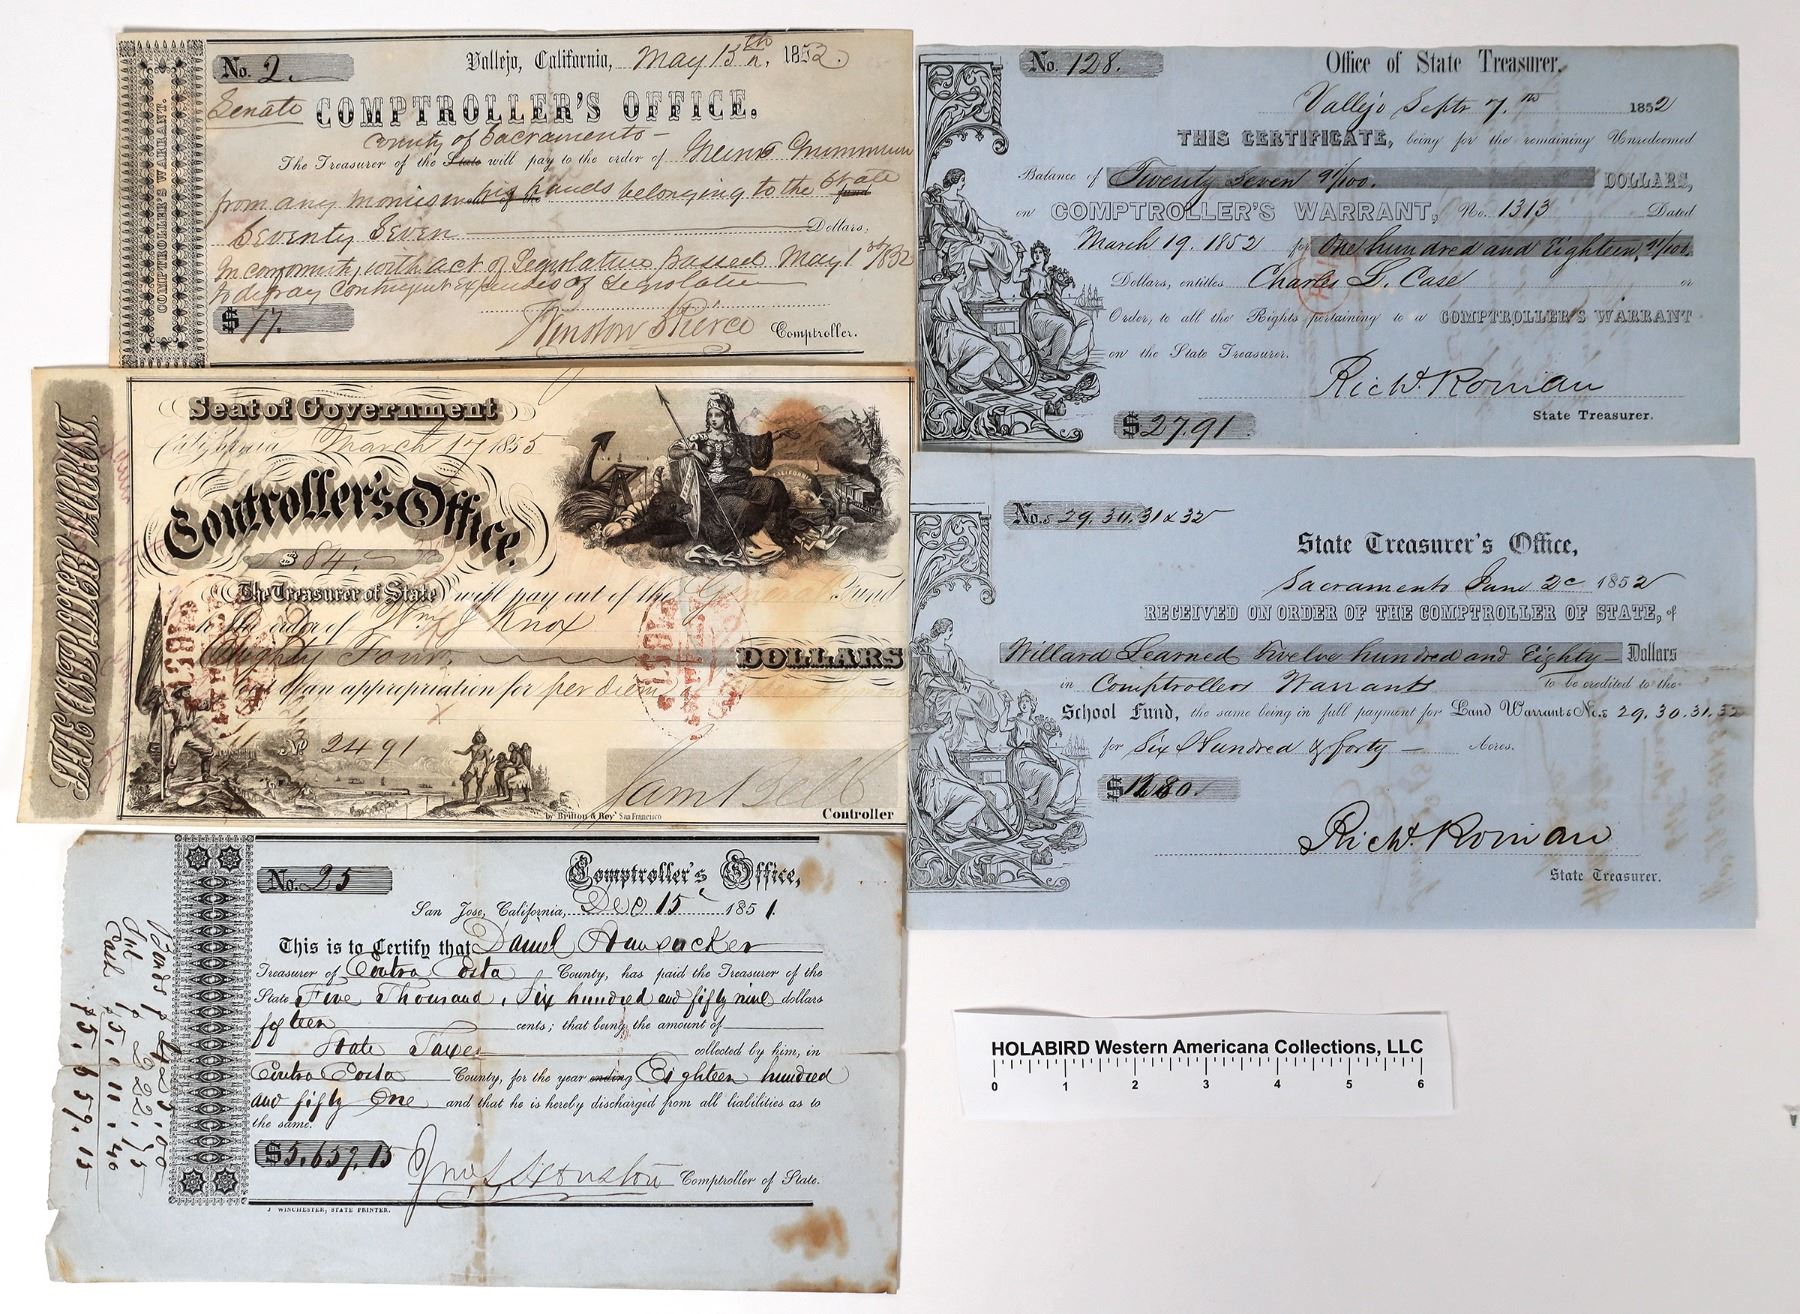 No. 2.
Vallejo, California, May 13th, 1852.
Senate COMPTROLLER'S OFFICE.
County of Sacramento -
The Treasurer of the State will pay to the order of
from any monies belonging to the State
Seventy Seven Dollars,
In conformity with act of Legislature passed May 1st 1852
to defray Contingent Expenses of Legislature
$ 77.
Winslow S Pierce Comptroller.
COMPTROLLER'S WARRANT.
No. 128.
Office of State Treasurer,
Vallejo Septr 7th 1852
THIS CERTIFICATE, being for the remaining Unredeemed
Balance of Twenty Seven 91/100. DOLLARS,
on COMPTROLLER'S WARRANT, No. 1313 Dated
March 19. 1852 for One hundred and Eighteen, 91/100.
Dollars, entitles Charles L. Case or
Order, to all the Rights pertaining to a COMPTROLLER'S WARRANT
on the State Treasurer.
Richd. Roman
State Treasurer.
$ 27.91
THE CONTROLLER WARRANT.
Seat of Government
California March 17 1855
Controller's Office.
$ 84.
CALIFORNIA
The Treasurer of State will pay out of the General Fund
to the order of Wm J Knox
Eighty Four, DOLLARS
out of an appropriation for per diem
No 2491
Saml Bell
by Britton & Rey San Francisco
Controller
No.s 29. 30. 31 & 32
State Treasurer's Office,
Sacramento June 2d 1852
RECEIVED ON ORDER OF THE COMPTROLLER OF STATE, of
Willard Learned Twelve hundred and Eighty - Dollars
in Comptrollers Warrants to be credited to the
School Fund, the same being in full payment for Land Warrants No.s 29. 30. 31. 32
for Six Hundred & forty - Acres.
$ 1280.
Richd. Roman
State Treasurer.
No. 25
Comptroller's Office,
San Jose, California, Dec 15 1851.
This is to Certify that Daniel Hunsacker
Treasurer of Contra Costa County, has paid the Treasurer of the
State Five Thousand, Six hundred and fifty nine dollars
fifteen cents; that being the amount of
State Taxes collected by him, in
Contra Costa County, for the year ending Eighteen hundred
and fifty One and that he is hereby discharged from all liabilities as to
the same.
$5,659.15
Jno. S. Houston Comptroller of State.
J WINCHESTER, STATE PRINTER.
Cash
$5.659.15
HOLABIRD Western Americana Collections, LLC
0 1 2 3 4 5 6